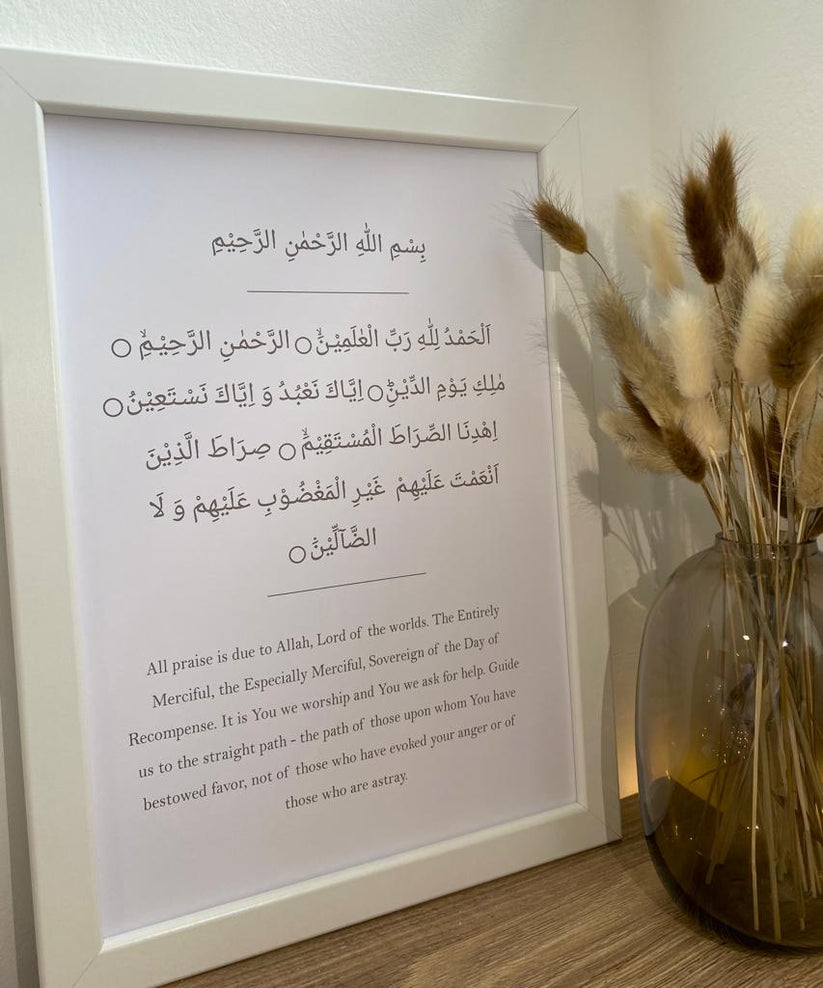 بِسْمِ اللّٰهِ الرَّحْمٰنِ الرَّحِيْمِ
اَلْحَمْدُ لِلّٰهِ رَبِّ الْعٰلَمِيْنَۙ○ الرَّحْمٰنِ الرَّحِيْمِۙ○
مٰلِكِ يَوْمِ الدِّيْنِؕ○ اِيَّاكَ نَعْبُدُ وَ اِيَّاكَ نَسْتَعِيْنُؕ○
اِهْدِنَا الصِّرَاطَ الْمُسْتَقِيْمَۙ○ صِرَاطَ الَّذِيْنَ
اَنْعَمْتَ عَلَيْهِمْ غَيْرِ الْمَغْضُوْبِ عَلَيْهِمْ وَ لَا
الضَّآلِّيْنَ۠○
All praise is due to Allah, Lord of the worlds. The Entirely
Merciful, the Especially Merciful, Sovereign of the Day of
Recompense. It is You we worship and You we ask for help. Guide
us to the straight path - the path of those upon whom You have
bestowed favor, not of those who have evoked your anger or of
those who are astray.